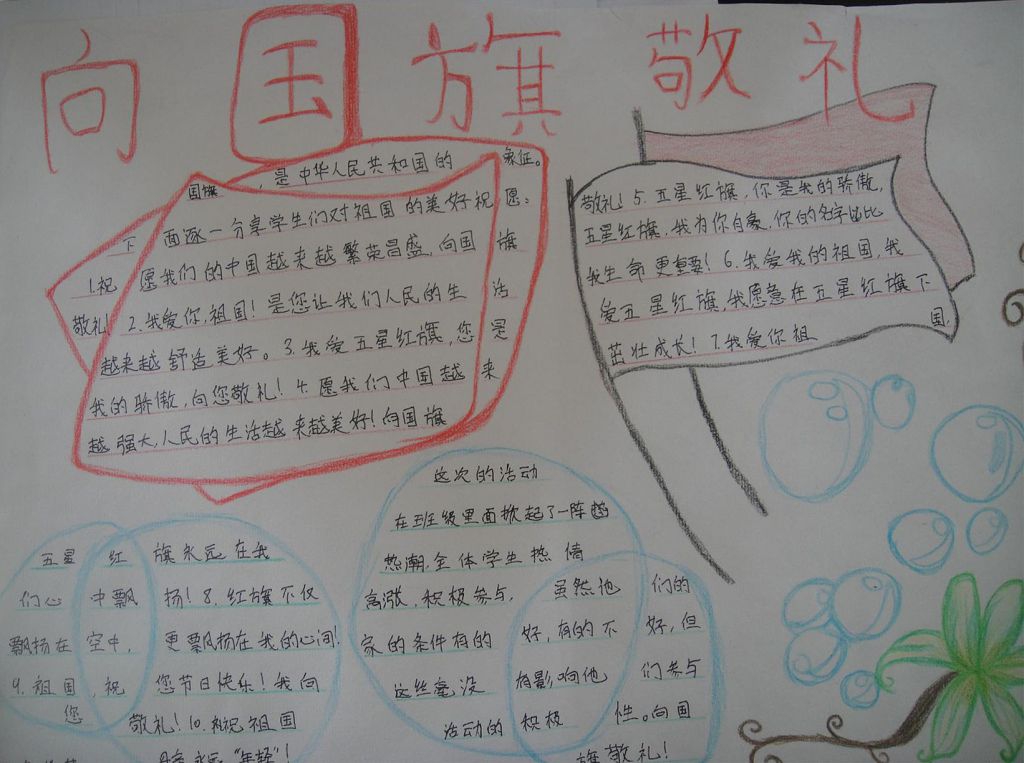 向国旗敬礼
国旗,是中华人民共和国的象征。
下面逐一分享学生们对祖国的美好祝愿:
1.祝愿我们的中国越来越繁荣昌盛,向国旗
敬礼!2.我爱你,祖国!是您让我们人民的生活
越来越舒适美好。3.我爱五星红旗,您是
我的骄傲,向您敬礼!4.愿我们中国越来
越强大人民的生活越来越美好!向国旗
敬礼!5.五星红旗,你是我的骄傲,
五星红旗,我为你自豪,你的名字比
我生命更重要!6.我爱我的祖国,我
爱五星红旗,我愿意在五星红旗下
茁壮成长!7.我爱你祖国,
五星红旗永远在我
们心中飘扬!8.红旗不仅
飘扬在空中,更飘扬在我的心间!
9.祖国,祝您节日快乐!我向
您敬礼!10.祝祖国
永远“年轻”!
这次的活动
在班级里面掀起了一阵
热潮,全体学生热情
高涨,积极参与,虽然他们的
家的条件有的好,有的不好,但
这丝毫没有影响他们参与
活动的积极性。向国
旗敬礼!